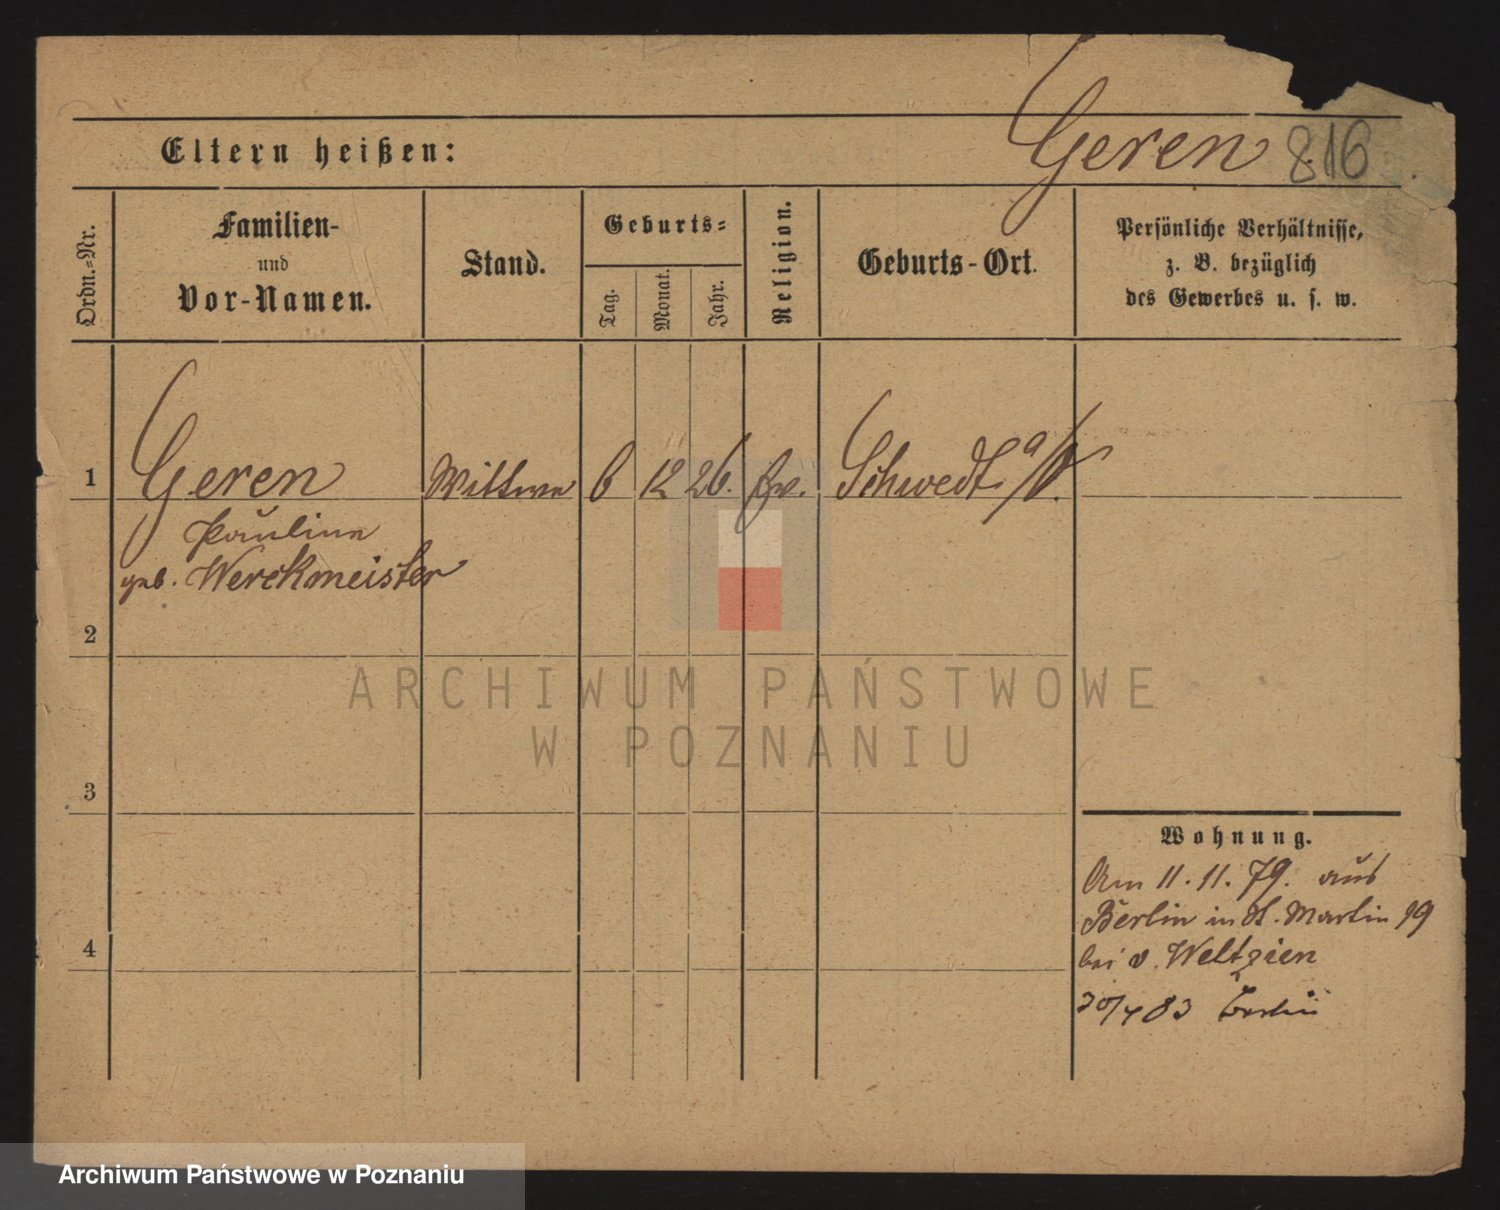 Geren 816
Eltern heißen:
Ordn.-Nr.
Familien-
und
Vor-Namen.
Stand.
Geburts-
Tag.
Monat.
Jahr.
Religion.
Geburts-Ort.
Persönliche Verhältnisse,
z. B. bezüglich
des Gewerbes u. s. w.
1 Geren Wittwe 6 12 26. ev. Schwedt a/O.
Pauline
geb. Werckmeister
2
3
4
Wohnung.
Am 11. 11. 79. aus
Berlin in St. Martin 19
bei v. Weltzien
83 Berlin
ARCHIWUM PAŃSTWOWE
W POZNANIU
Archiwum Państwowe w Poznaniu